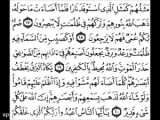 مَثَلُهُمْ كَمَثَلِ ٱلَّذِى ٱسْتَوْقَدَ نَارًا فَلَمَّآ أَضَآءَتْ مَا حَوْلَهُۥ
ذَهَبَ ٱللَّهُ بِنُورِهِمْ وَتَرَكَهُمْ فِى ظُلُمَٰتٍ لَّا يُبْصِرُونَ ١٧
صُمٌّۢ بُكْمٌ عُمْىٌ فَهُمْ لَا يَرْجِعُونَ ١٨ أَوْ كَصَيِّبٍ مِّنَ ٱلسَّمَآءِ فِيهِ
ظُلُمَٰتٌ وَرَعْدٌ وَبَرْقٌ يَجْعَلُونَ أَصَٰبِعَهُمْ فِىٓ ءَاذَانِهِم مِّنَ
ٱلصَّوَٰعِقِ حَذَرَ ٱلْمَوْتِ وَٱللَّهُ مُحِيطٌۢ بِٱلْكَٰفِرِينَ ١٩
يَكَادُ ٱلْبَرْقُ يَخْطَفُ أَبْصَٰرَهُمْ كُلَّمَآ أَضَآءَ لَهُم مَّشَوْا۟ فِيهِ وَإِذَآ أَظْلَمَ عَلَيْهِمْ قَامُوا۟
وَلَوْ شَآءَ ٱللَّهُ لَذَهَبَ بِسَمْعِهِمْ وَأَبْصَٰرِهِمْ إِنَّ ٱللَّهَ عَلَىٰ كُلِّ
شَىْءٍ قَدِيرٌ ٢٠ يَٰٓأَيُّهَا ٱلنَّاسُ